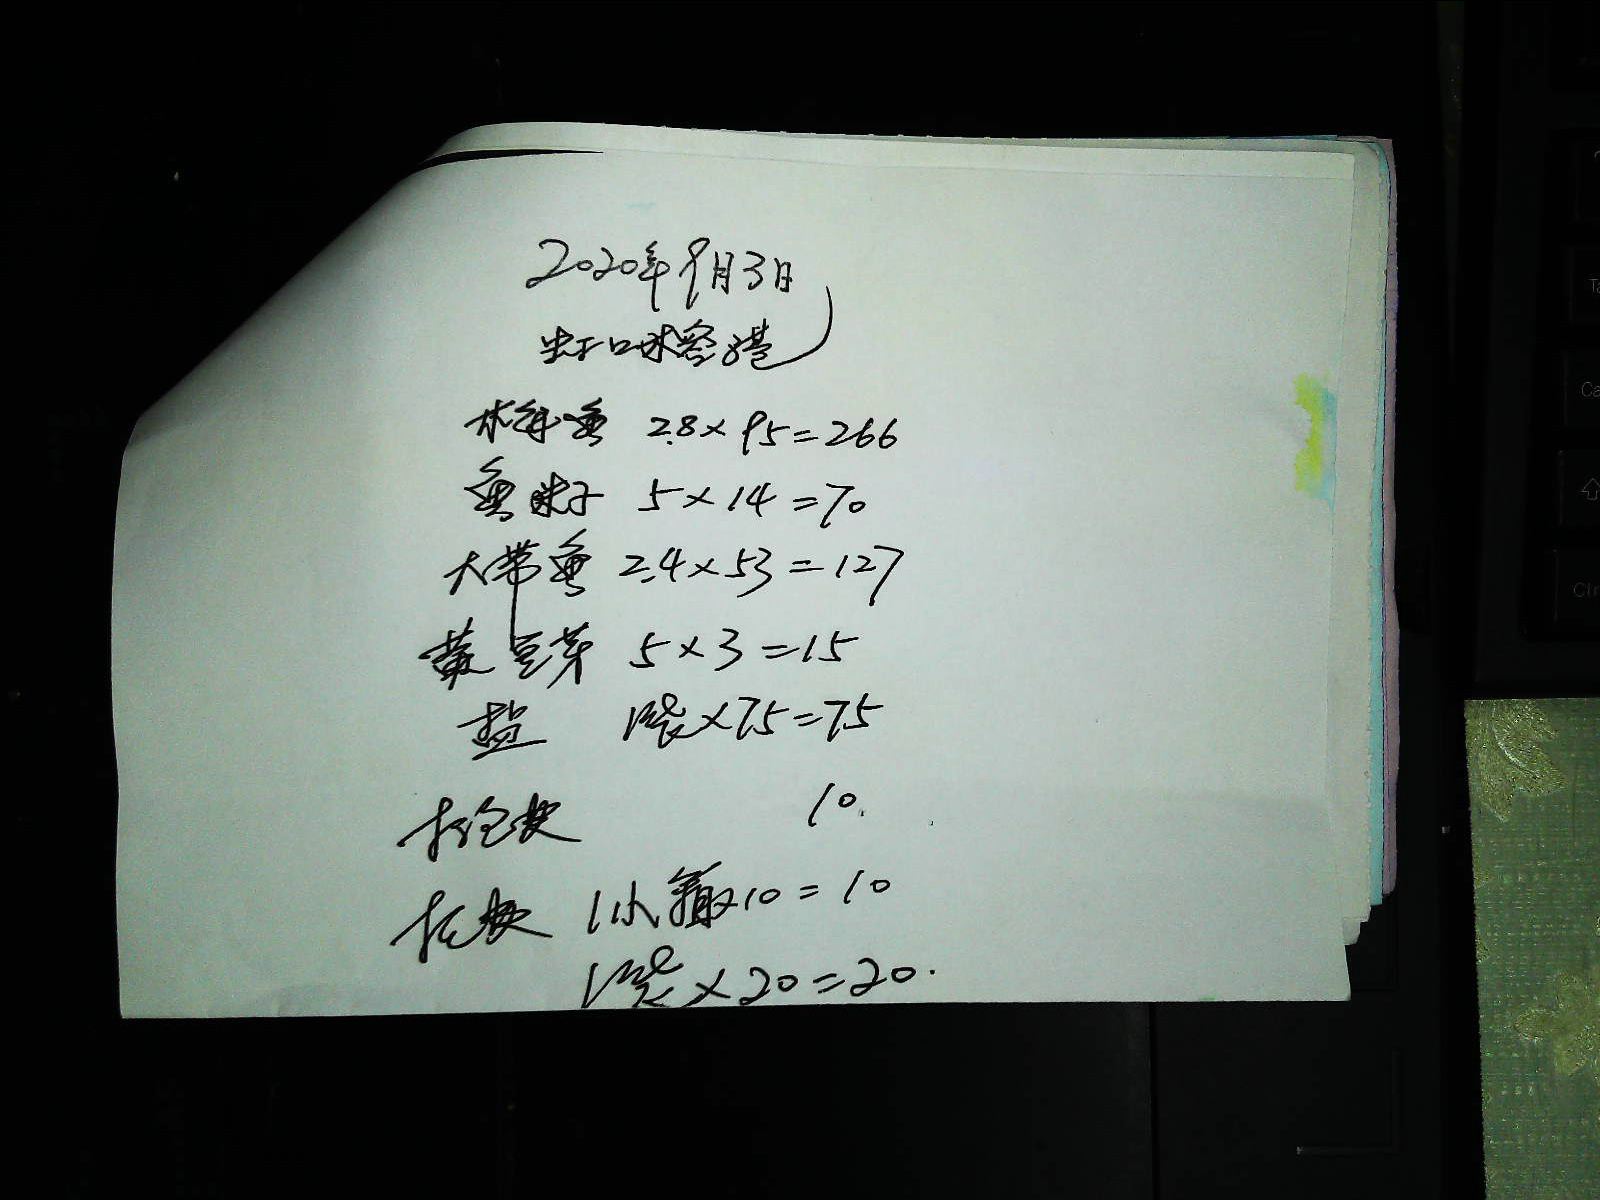 2020年9月3日
虹口味容港
鱼 2.8×95=266
鱼 子 5×14=70
大带鱼 2.4×53=127
黄豆芽 5×3=15
盐 1袋×75=75
块 10.
块 1小箱×10=10
1袋×20=20.